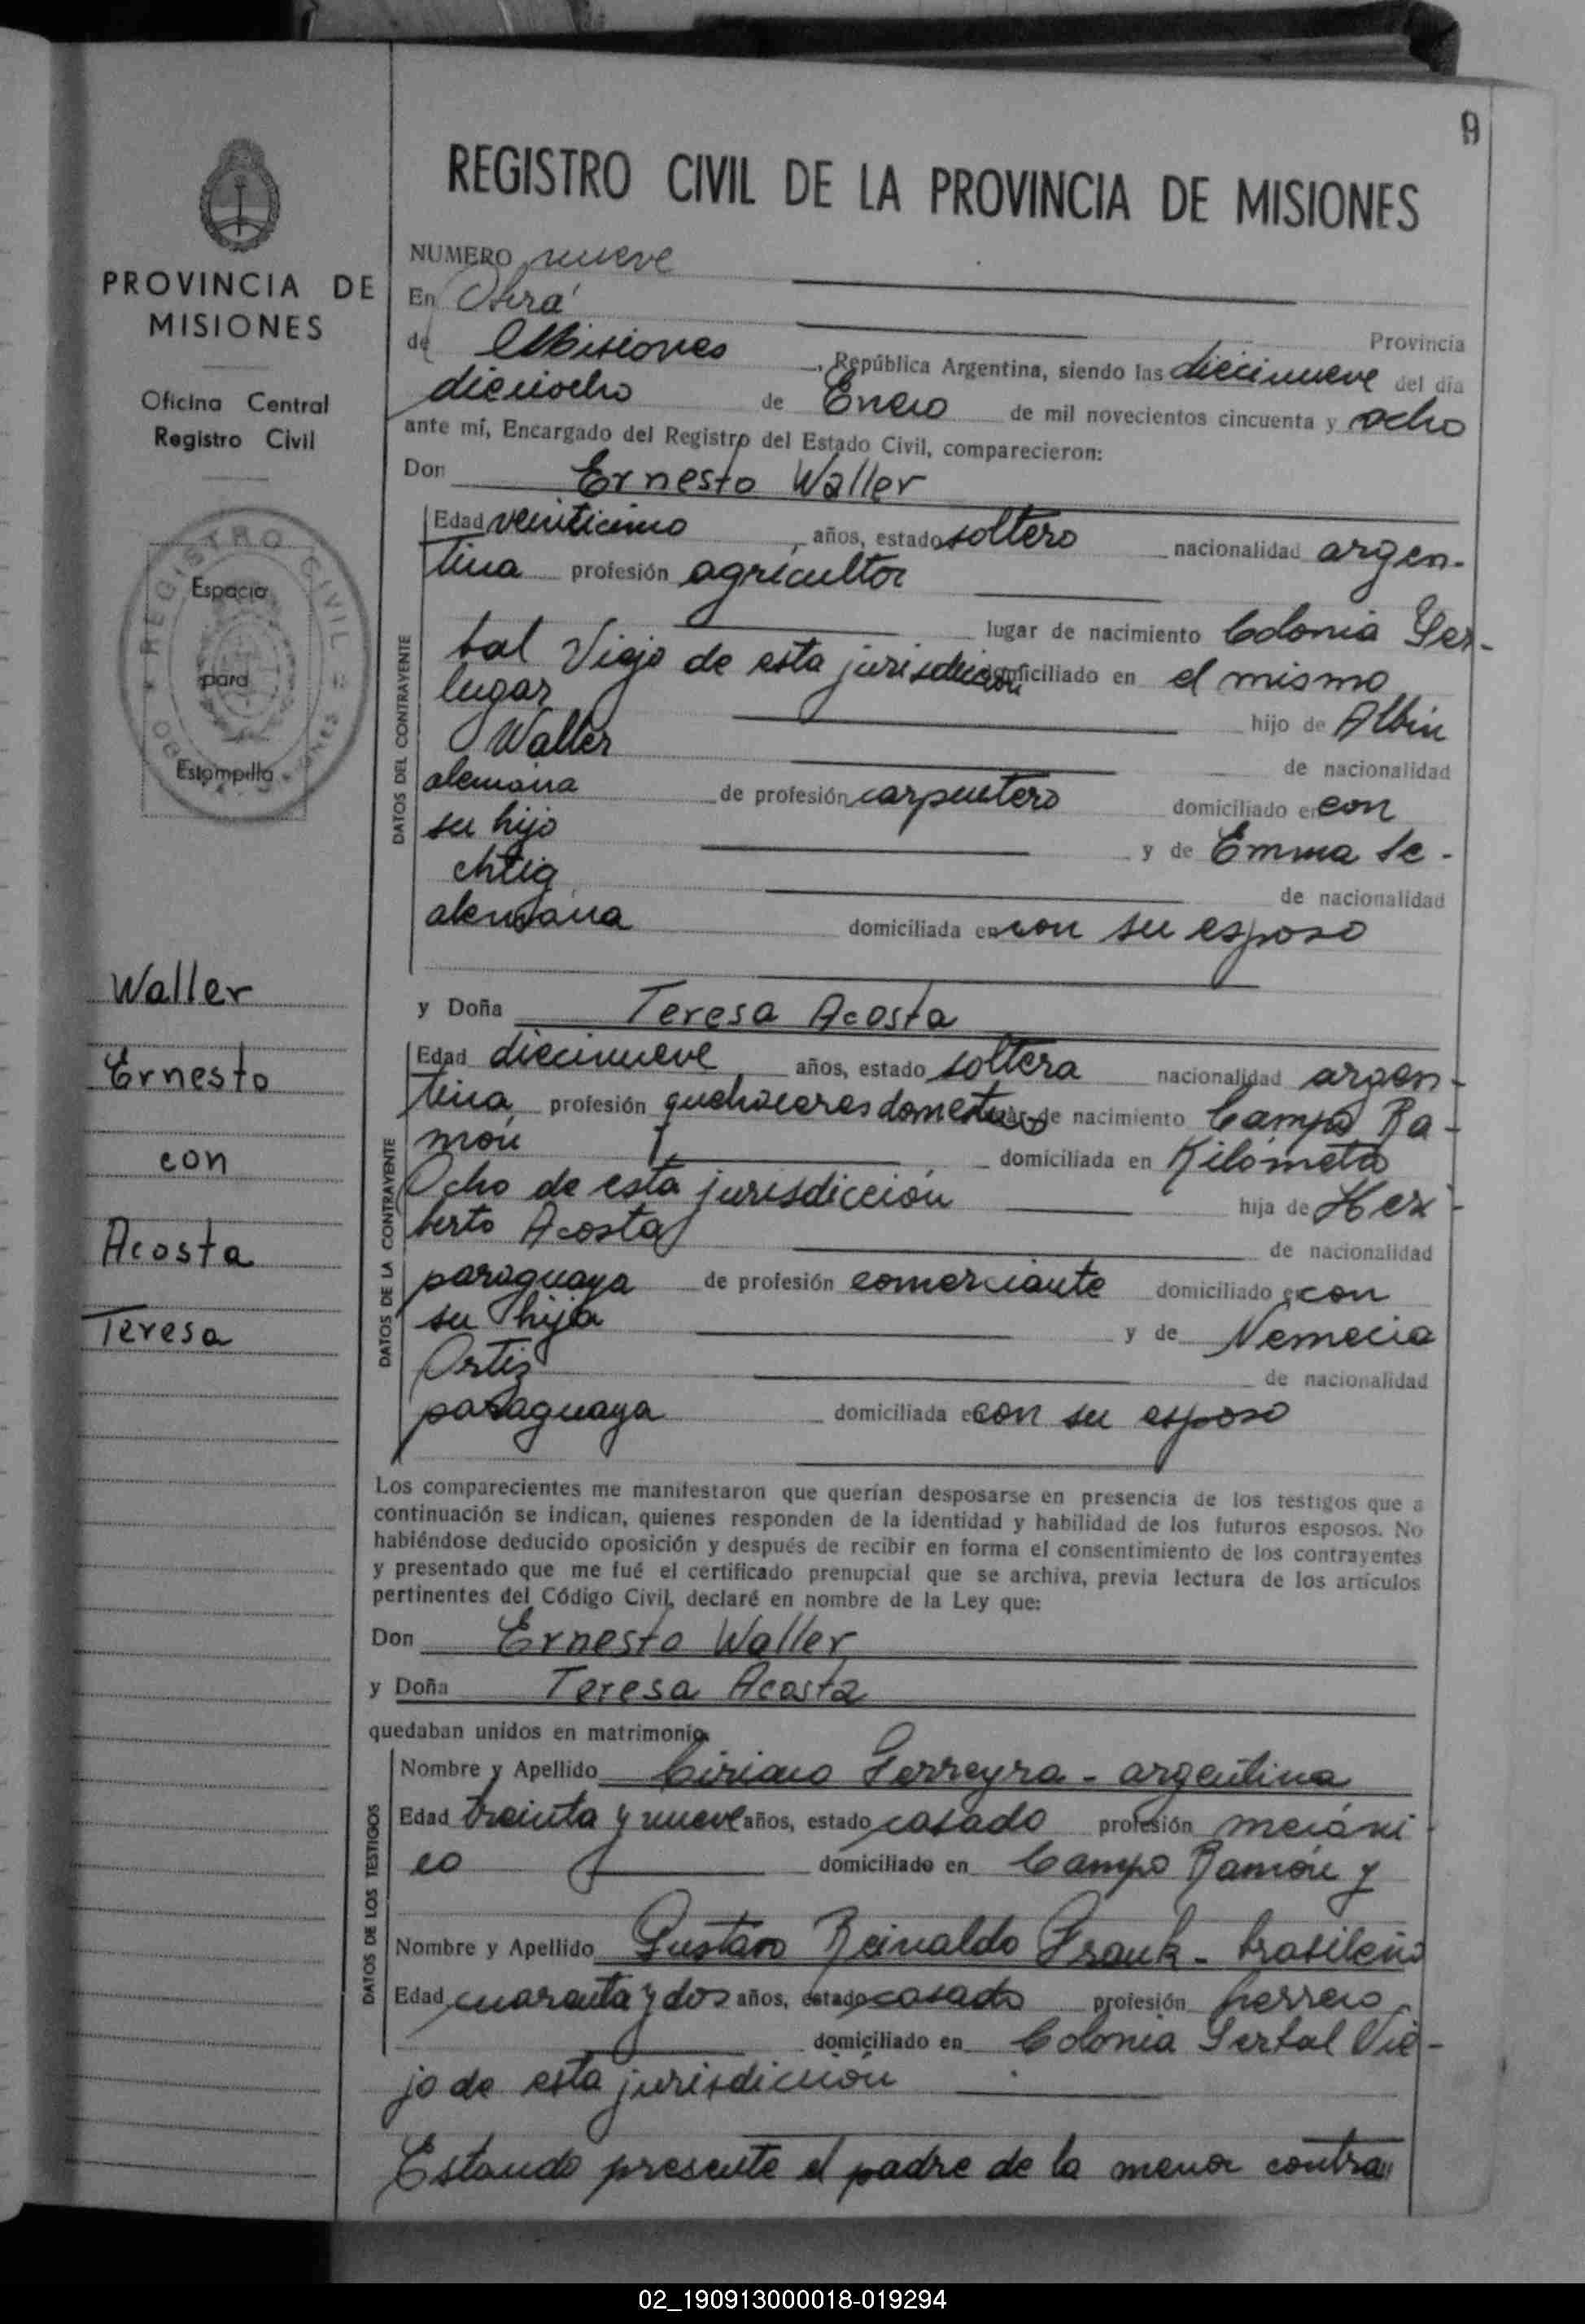 9
REGISTRO CIVIL DE LA PROVINCIA DE MISIONES
PROVINCIA DE
MISIONES
Oficina Central
Registro Civil
REGISTRO CIVIL
Espacio
para
Estampilla
Waller
Ernesto
con
Acosta
Teresa
NUMERO nueve
En Oberá
Provincia
de Misiones, República Argentina, siendo las diecinueve del día
dieciocho de Enero de mil novecientos cincuenta y ocho
ante mí, Encargado del Registro del Estado Civil, comparecieron:
Don Ernesto Waller
DATOS DEL CONTRAYENTE
Edad veinticinco años, estado soltero nacionalidad argen-
tina profesión agricultor
lugar de nacimiento Colonia Yer-
bal Viejo de esta jurisdicción domiciliado en el mismo
lugar hijo de Albin
Waller de nacionalidad
alemana de profesión carpintero domiciliado en con
su hijo y de Emma Se-
chtig de nacionalidad
alemana domiciliada en con su esposo
y Doña Teresa Acosta
DATOS DE LA CONTRAYENTE
Edad diecinueve años, estado soltera nacionalidad argen-
tina profesión quehaceres domesticos lugar de nacimiento Campo Ra-
món domiciliada en Kilómetro
Ocho de esta jurisdicción hija de Heri-
berto Acosta de nacionalidad
paraguaya de profesión comerciante domiciliado en con
su hija y de Nemecia
Ortiz de nacionalidad
paraguaya domiciliada en con su esposo
Los comparecientes me manifestaron que querían desposarse en presencia de los testigos que a
continuación se indican, quienes responden de la identidad y habilidad de los futuros esposos. No
habiéndose deducido oposición y después de recibir en forma el consentimiento de los contrayentes
y presentado que me fué el certificado prenupcial que se archiva, previa lectura de los artículos
pertinentes del Código Civil, declaré en nombre de la Ley que:
Don Ernesto Waller
y Doña Teresa Acosta
quedaban unidos en matrimonio
DATOS DE LOS TESTIGOS
Nombre y Apellido Ciriaco Ferreyra - argentina
Edad treinta y nueve años, estado casado profesión mecáni
co domiciliado en Campo Ramón y
Nombre y Apellido Gustavo Reinaldo Frank - brasileño
Edad cuarenta y dos años, estado casado profesión herrero
domiciliado en Colonia Yerbal Vie-
jo de esta jurisdicción
Estando presente el padre de la menor contra
02_190913000018-019294